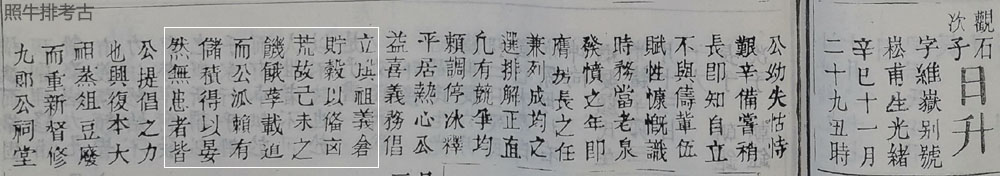 照牛排考古
觀石
次子
日升
字維嶽別號
崧甫生光緒
辛巳十一月
二十九丑時
公幼失怙恃
艱辛備嘗稍
長卽知自立
不與儔輩伍
賦性慷慨識
時務當老泉
發憤之年卽
膺坊長之任
兼列成均之
選排解正直
凢有競爭均
賴調停冰釋
平居熱心公
益喜義務倡
立琪祖義倉
貯穀以俻凶
荒故己未之
饑餓莩載道
而公派賴有
儲積得以晏
然無患者皆
公提倡之力
也興復本大
祖蒸祖豆廢
而重新督修
九郎公祠堂